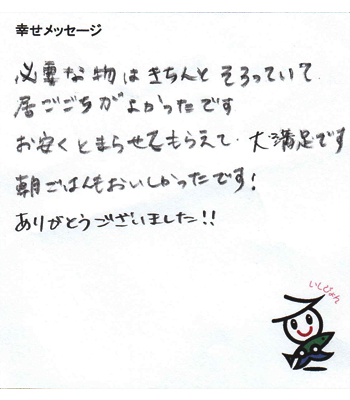 幸せメッセージ
必要な物はきちんとそろっていて、
居ごごちがよかったです
お安くとまらせてもらえて、大満足です
朝ごはんもおいしかったです!
ありがとうございました!!
いしぴょん